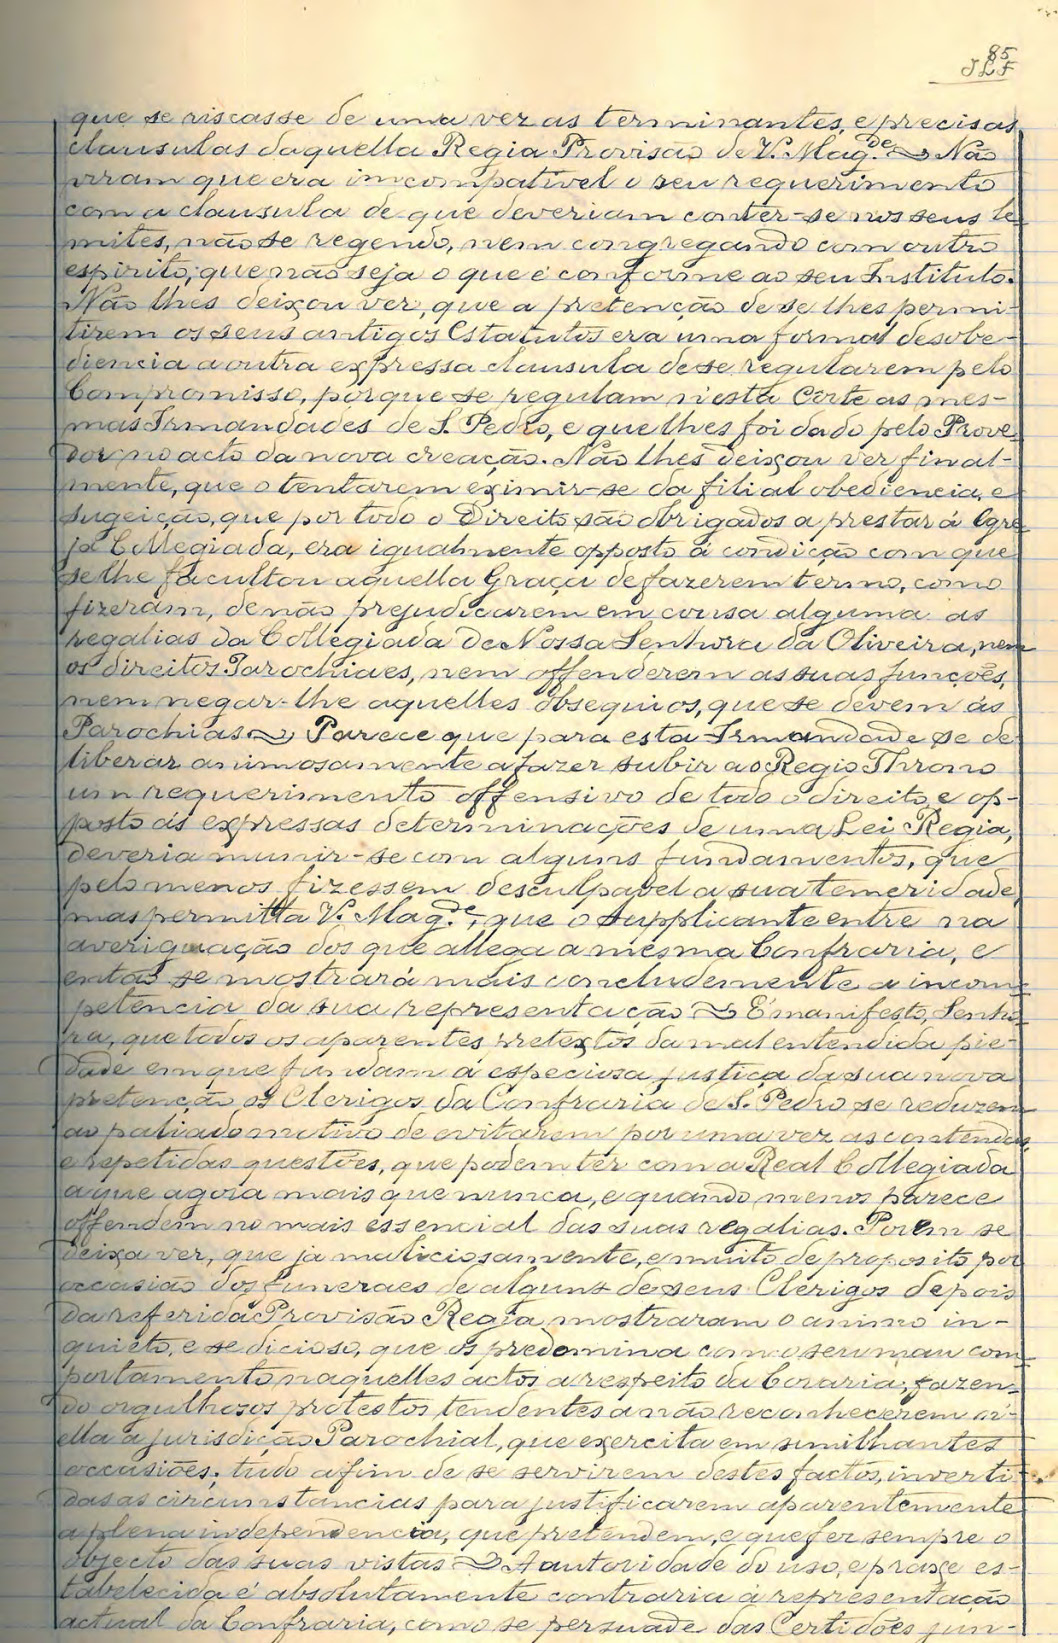 85
JLF
que se riscasse de uma vez as terminantes, e precisas
clausulas daquella Regia Provisão de V. Mag.de ~ Não
viram que era incompativel o seu requerimento
com a clausula de que deveriam conter-se nos seus le
mites, não se regendo, nem congregando com outro
espirito, que não seja o que é conforme ao seu Instituto.
Não lhes deixou ver, que a pretenção de se lhes permi-
tirem os seus antigos Estatutos era uma formal desobe-
diencia a outra expressa clausula de se regularem pelo
Compromisso, porque se regulam n'esta Côrte as mes-
mas Irmandades de S. Pedro, e que lhes foi dado pelo Prove
dor no acto da nova creação. Não lhes deixou ver final-
mente, que o tentarem eximir-se da filial obediencia, e
sugeição, que por todo o Direito são obrigados a prestar á Egre
ja Collegiada, era igualmente opposto á condição com que
se lhe facultou aquella Graça de fazerem termo, como
fizeram, de não prejudicarem em cousa alguma as
regalias da Collegiada de Nossa Senhora da Oliveira, nem
os direitos Parochiaes, nem offenderem as suas funções,
nem negar-lhe aquelles obsequios, que se devem ás
Parochias ~ Parece que para esta Irmandade se de
liberar animosamente a fazer subir ao Regio Throno
um requerimento offensivo de todo o direito, e op-
posto ás expressas determinações de uma Lei Regia,
deveria munir-se com alguns fundamentos, que
pelo menos fizessem desculpavel a sua temeridade,
mas permitta V. Mag.de, que o supplicante entre na
averiguação dos que allega a mesma Confraria, e
então se mostrará mais concludemente a incom-
petencia da sua representação ~ É manifesto, Senho
ra, que todos os aparentes pretextos da mal entendida pie-
dade em que fundam a especiosa justiça da sua nova
pretenção os Clerigos da Confraria de S. Pedro se reduzem
ao paliado motivo de evitarem por uma vez as contendas,
e repetidas questões, que podem ter com a Real Collegiada
a que agora mais que nunca, e quando menos parece
offendem no mais essencial das suas regalias. Porem se
deixa ver, que já maliciosamente, e muito de proposito por
occasião dos funeraes de alguns de seus Clerigos depois
da referida Provisão Regia, mostraram o animo in-
quieto, e sedicioso, que os predomina com o seru mau com-
portamento naquelles actos a respeito da Coraria, fazen-
do orgulhosos protestos tendentes a não reconhecerem n'-
ella a jurisdicção Parochial, que exercita em similhantes
occasiões; tudo afim de se servirem destes factos, inverti-
das as circumstancias para justificarem aparentemente
a plena independencia, que pretendem, e que fer sempre o
objecto das suas vistas ~ A autoridade do uso, e praxe es-
tabelecida é absolutamente contraria á representação
actual da Confraria, como se persuade das Certidões jun-